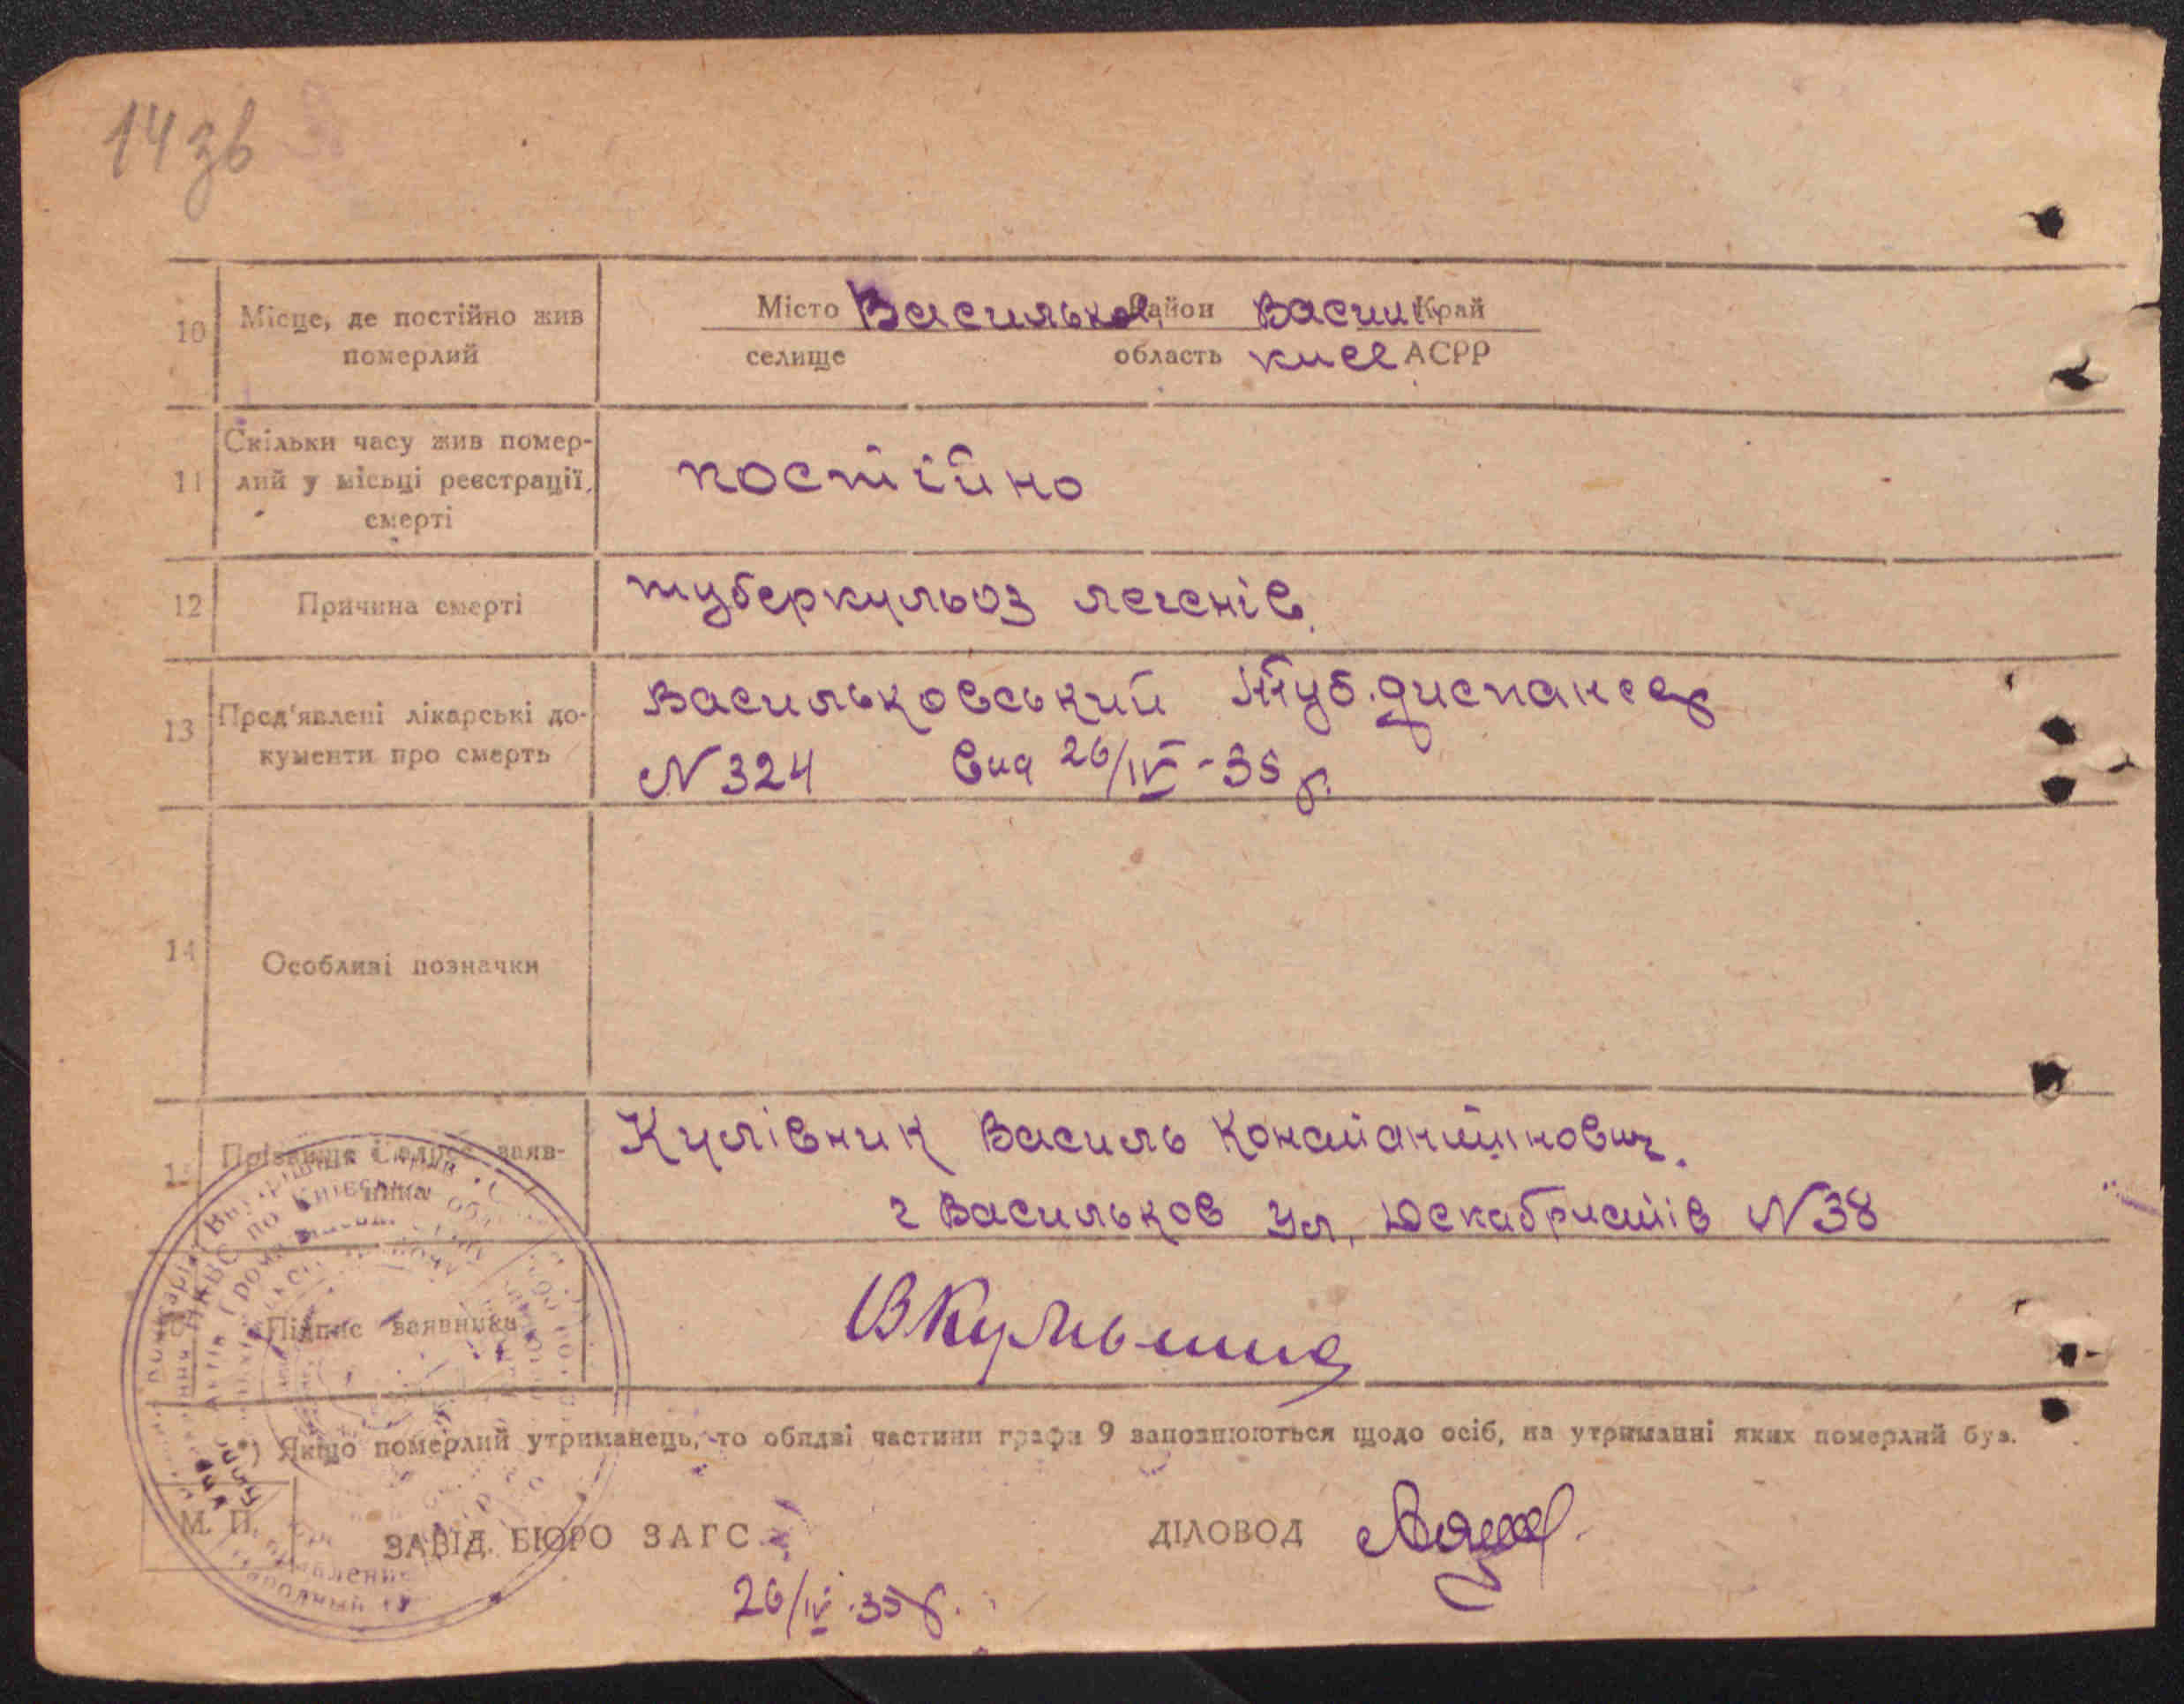 14 зв
10 Місце, де постійно жив померлий
Місто Васильков Район Васильк Край
селище область киев АСРР
11 Скільки часу жив помер-
лий у місьці реєстрації
смерті
постійно
12 Причина смерті туберкульоз легенів.
13 Пред'явлені лікарські до-
кументи про смерть
Васильковський Туб. диспансер
N 324 вид 26/IV-35 р.
14 Особливі позначки
15 Прізвище і адреса заяв-
ника
Василь Константинович.
г Васильков ул. Декабристів N 38
Підпис заявника
*) Якщо померлий утриманець, то обидві частини графи 9 заповнюються щодо осіб, на утриманні яких померлий був.
М. П. ЗАВІД. БЮРО ЗАГС ДІЛОВОД
26/IV.35 р.